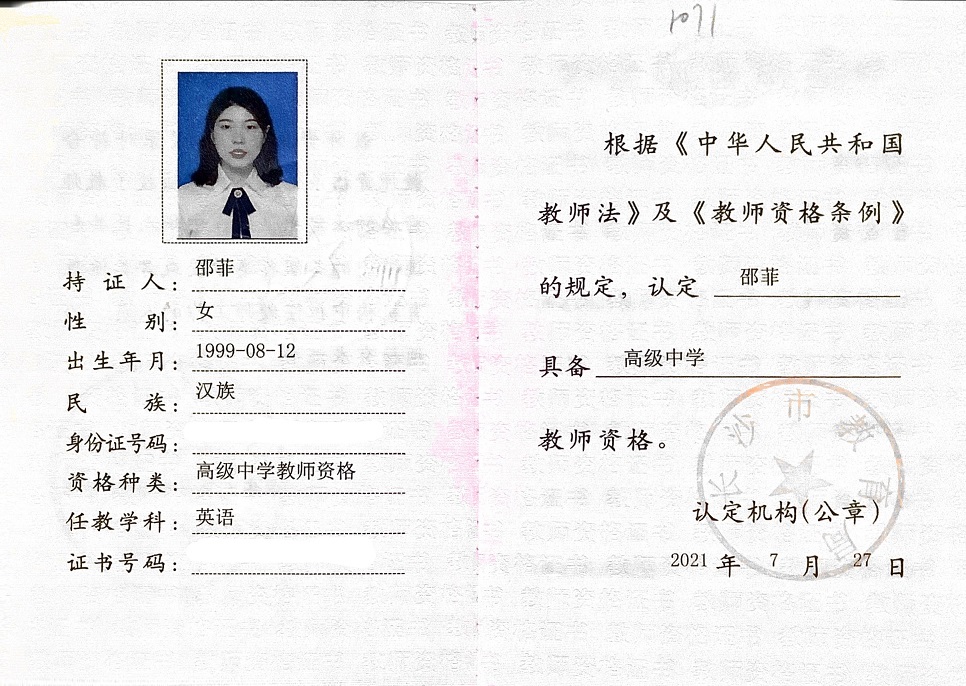 1071
持证人：邵菲
性别：女
出生年月：1999-08-12
民族：汉族
身份证号码：
资格种类：高级中学教师资格
任教学科：英语
证书号码：
根据《中华人民共和国
教师法》及《教师资格条例》
的规定，认定 邵菲
具备 高级中学
教师资格。
长沙市教育局
认定机构(公章)
2021 年 7 月 27 日